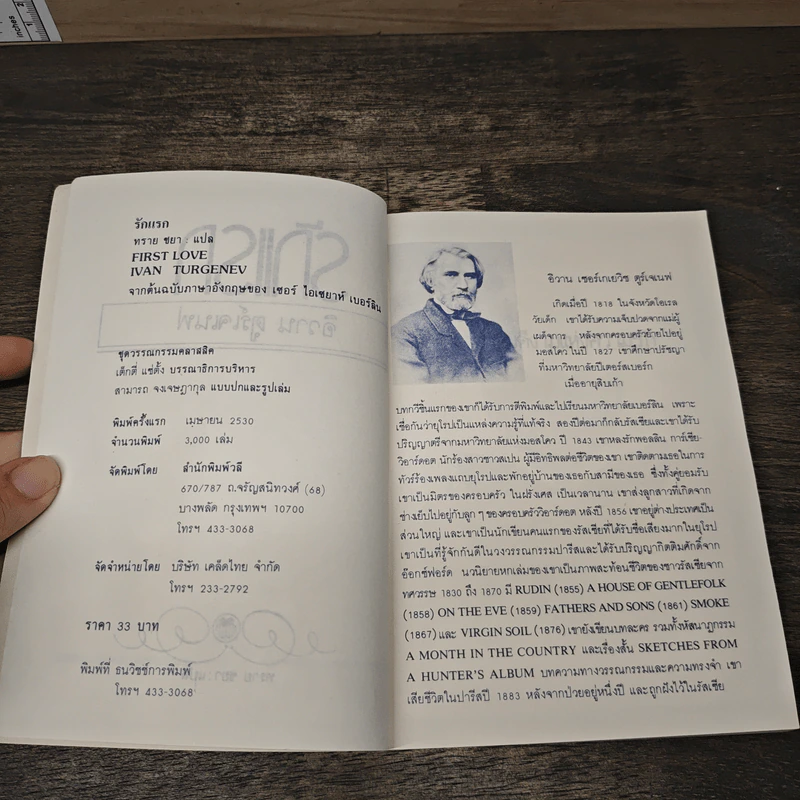 inches
1
2
รักแรก
ทราย ชยา : แปล
FIRST LOVE
IVAN TURGENEV
จากต้นฉบับภาษาอังกฤษของ เซอร์ ไอเซยาห์ เบอร์ลิน
ชุดวรรณกรรมคลาสสิค
เต็กตี่ แซ่ตั้ง บรรณาธิการบริหาร
สามารถ จงเจษฎากุล แบบปกและรูปเล่ม
พิมพ์ครั้งแรก เมษายน 2530
จำนวนพิมพ์ 3,000 เล่ม
จัดพิมพ์โดย สำนักพิมพ์วลี
670/787 ถ.จรัญสนิทวงศ์ (68)
บางพลัด กรุงเทพฯ 10700
โทรฯ 433-3068
จัดจำหน่ายโดย บริษัท เคล็ดไทย จำกัด
โทรฯ 233-2792
ราคา 33 บาท
พิมพ์ที่ ธนวิชช์การพิมพ์
โทรฯ 433-3068
อิวาน เซอร์เกเยวิช ตูร์เจเนฟ
เกิดเมื่อปี 1818 ในจังหวัดโอเรล
วัยเด็ก เขาได้รับความเจ็บปวดจากแม่ผู้
เผด็จการ หลังจากครอบครัวย้ายไปอยู่
มอสโควในปี 1827 เขาศึกษาปรัชญา
ที่มหาวิทยาลัยปีเตอร์สเบอร์ก
เมื่ออายุสิบเก้า
บทกวีชิ้นแรกของเขาก็ได้รับการตีพิมพ์และไปเรียนมหาวิทยาลัยเบอร์ลิน เพราะ
เชื่อกันว่ายุโรปเป็นแหล่งความรู้ที่แท้จริง สองปีต่อมาก็กลับรัสเซียและเขาได้รับ
ปริญญาตรีจากมหาวิทยาลัยแห่งมอสโคว ปี 1843 เขาหลงรักพอลลิน การ์เซีย-
วิอาร์ดอต นักร้องสาวชาวสเปน ผู้มีอิทธิพลต่อชีวิตของเขา เขาติดตามเธอในการ
ทัวร์ร้องเพลงแถบยุโรปและพักอยู่บ้านของเธอกับสามีของเธอ ซึ่งทั้งคู่ยอมรับ
เขาเป็นมิตรของครอบครัว ในฝรั่งเศส เป็นเวลานาน เขาส่งลูกสาวที่เกิดจาก
ช่างเย็บไปอยู่กับลูก ๆ ของครอบครัววิอาร์ดอต หลังปี 1856 เขาอยู่ต่างประเทศเป็น
ส่วนใหญ่ และเขาเป็นนักเขียนคนแรกของรัสเซียที่ได้รับชื่อเสียงมากในยุโรป
เขาเป็นที่รู้จักกันดีในวงวรรณกรรมปารีสและได้รับปริญญากิตติมศักดิ์จาก
อ๊อกซ์ฟอร์ด นวนิยายหกเล่มของเขาเป็นภาพสะท้อนชีวิตของชาวรัสเซียจาก
ทศวรรษ 1830 ถึง 1870 มี RUDIN (1855) A HOUSE OF GENTLEFOLK
(1858) ON THE EVE (1859) FATHERS AND SONS (1861) SMOKE
(1867) และ VIRGIN SOIL (1876) เขายังเขียนบทละคร รวมทั้งหัสนาฏกรรม
A MONTH IN THE COUNTRY และเรื่องสั้น SKETCHES FROM
A HUNTER'S ALBUM บทความทางวรรณกรรมและความทรงจำ เขา
เสียชีวิตในปารีสปี 1883 หลังจากป่วยอยู่หนึ่งปี และถูกฝังไว้ในรัสเซีย